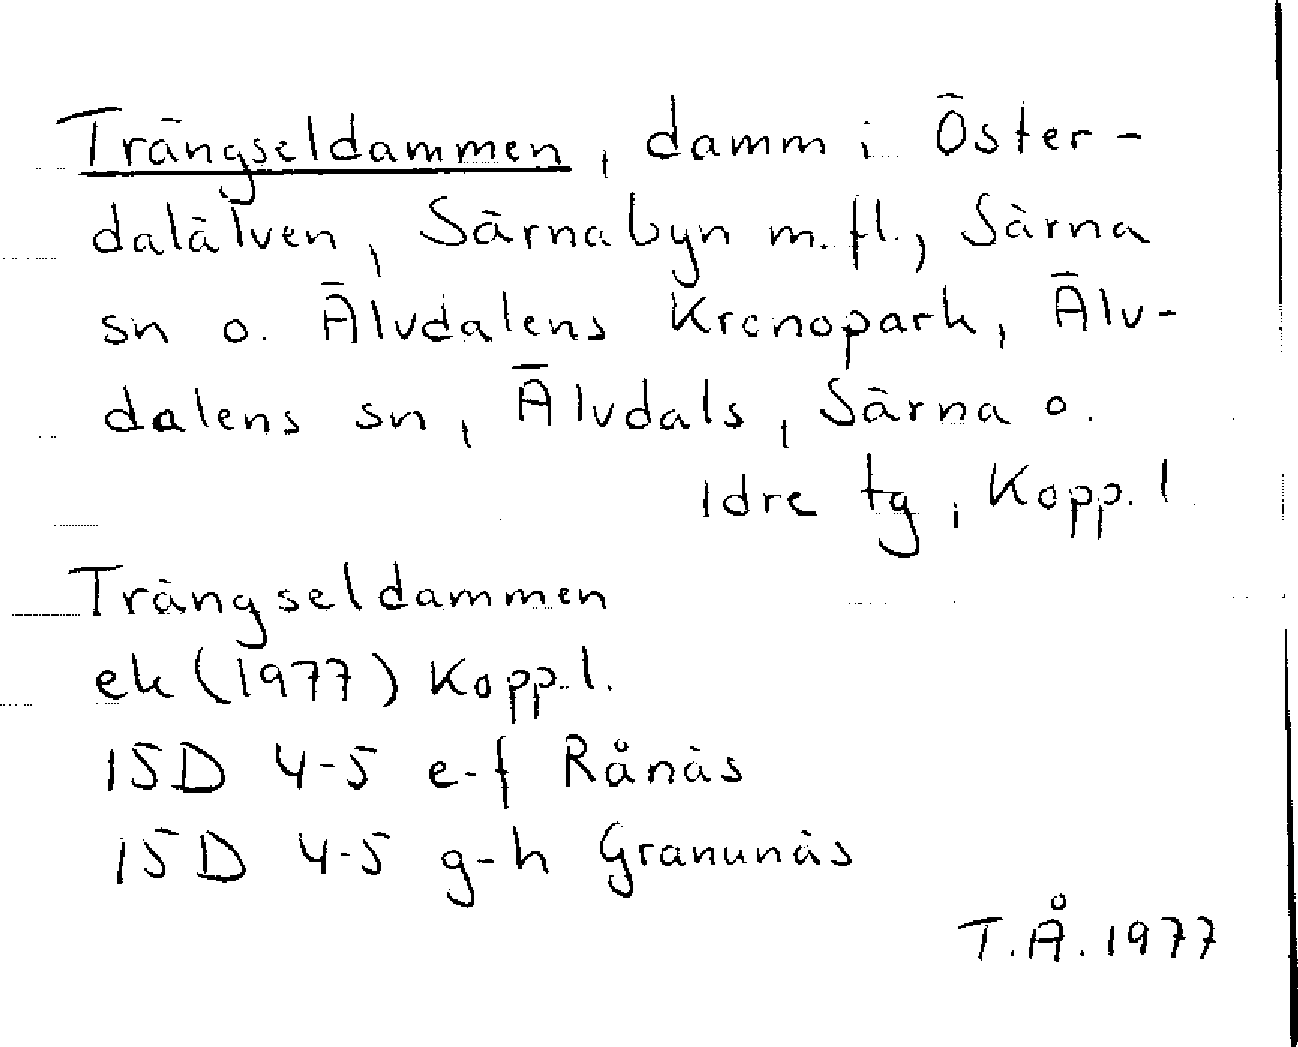 Trängseldammen, damm i Öster-
dalälven, Särnabyn m.fl., Särna
sn o. Älvdalens Kronopark, Älv-
dalens sn, Älvdals, Särna o.
Idre tg, Kopp. l
Trängseldammen
ek (1977) Kopp.l.
15D 4-5 e-f Rånäs
15D 4-5 g-h Granunäs
T.Å. 1977